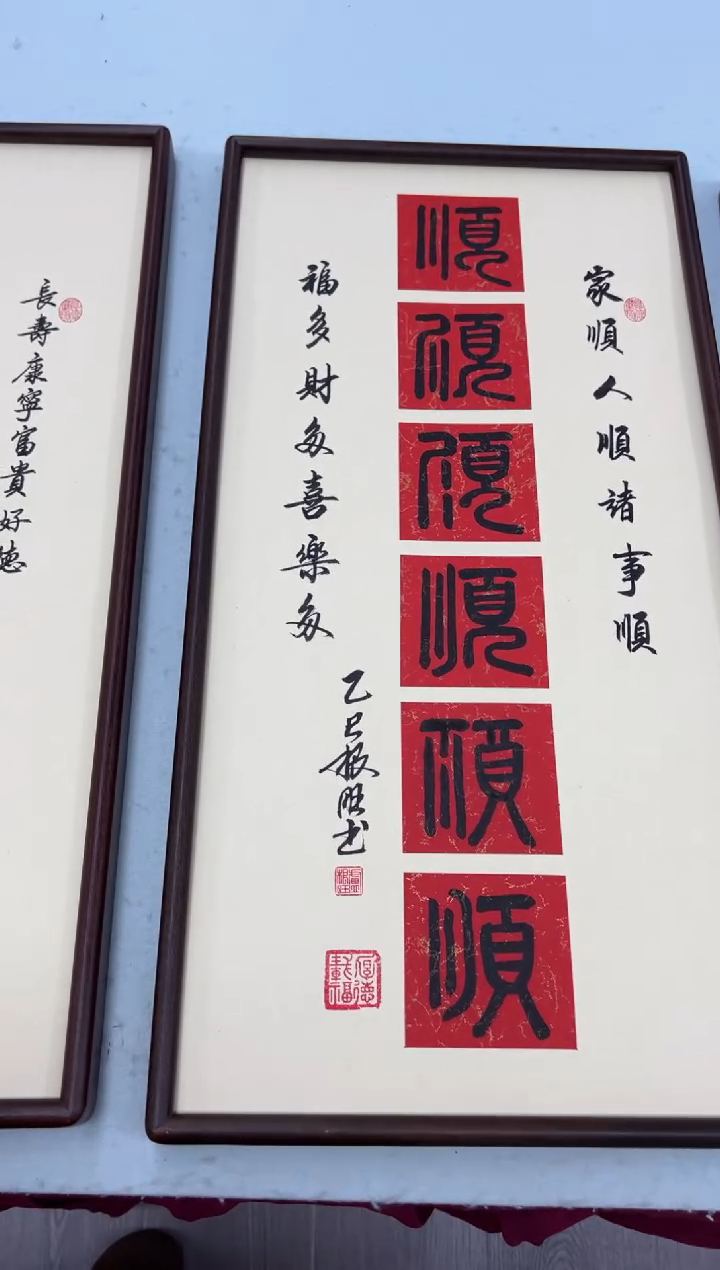 家順人順諸事順
順
順
順
順
順
順
福多財多喜樂多
乙巳振旺书
厚德載福
長壽康寧富貴好德